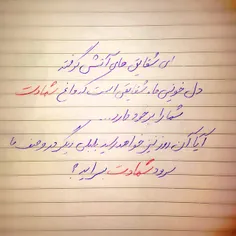 ای شقایق های آتش گرفته
دل خونین ما، شقایقی است که داغ شهادت
شما را بر خود دارد...
آیا آن روز نیز خواهد رسید بلبلی دیگر در وصف ما
سرود شهادت بسراید؟